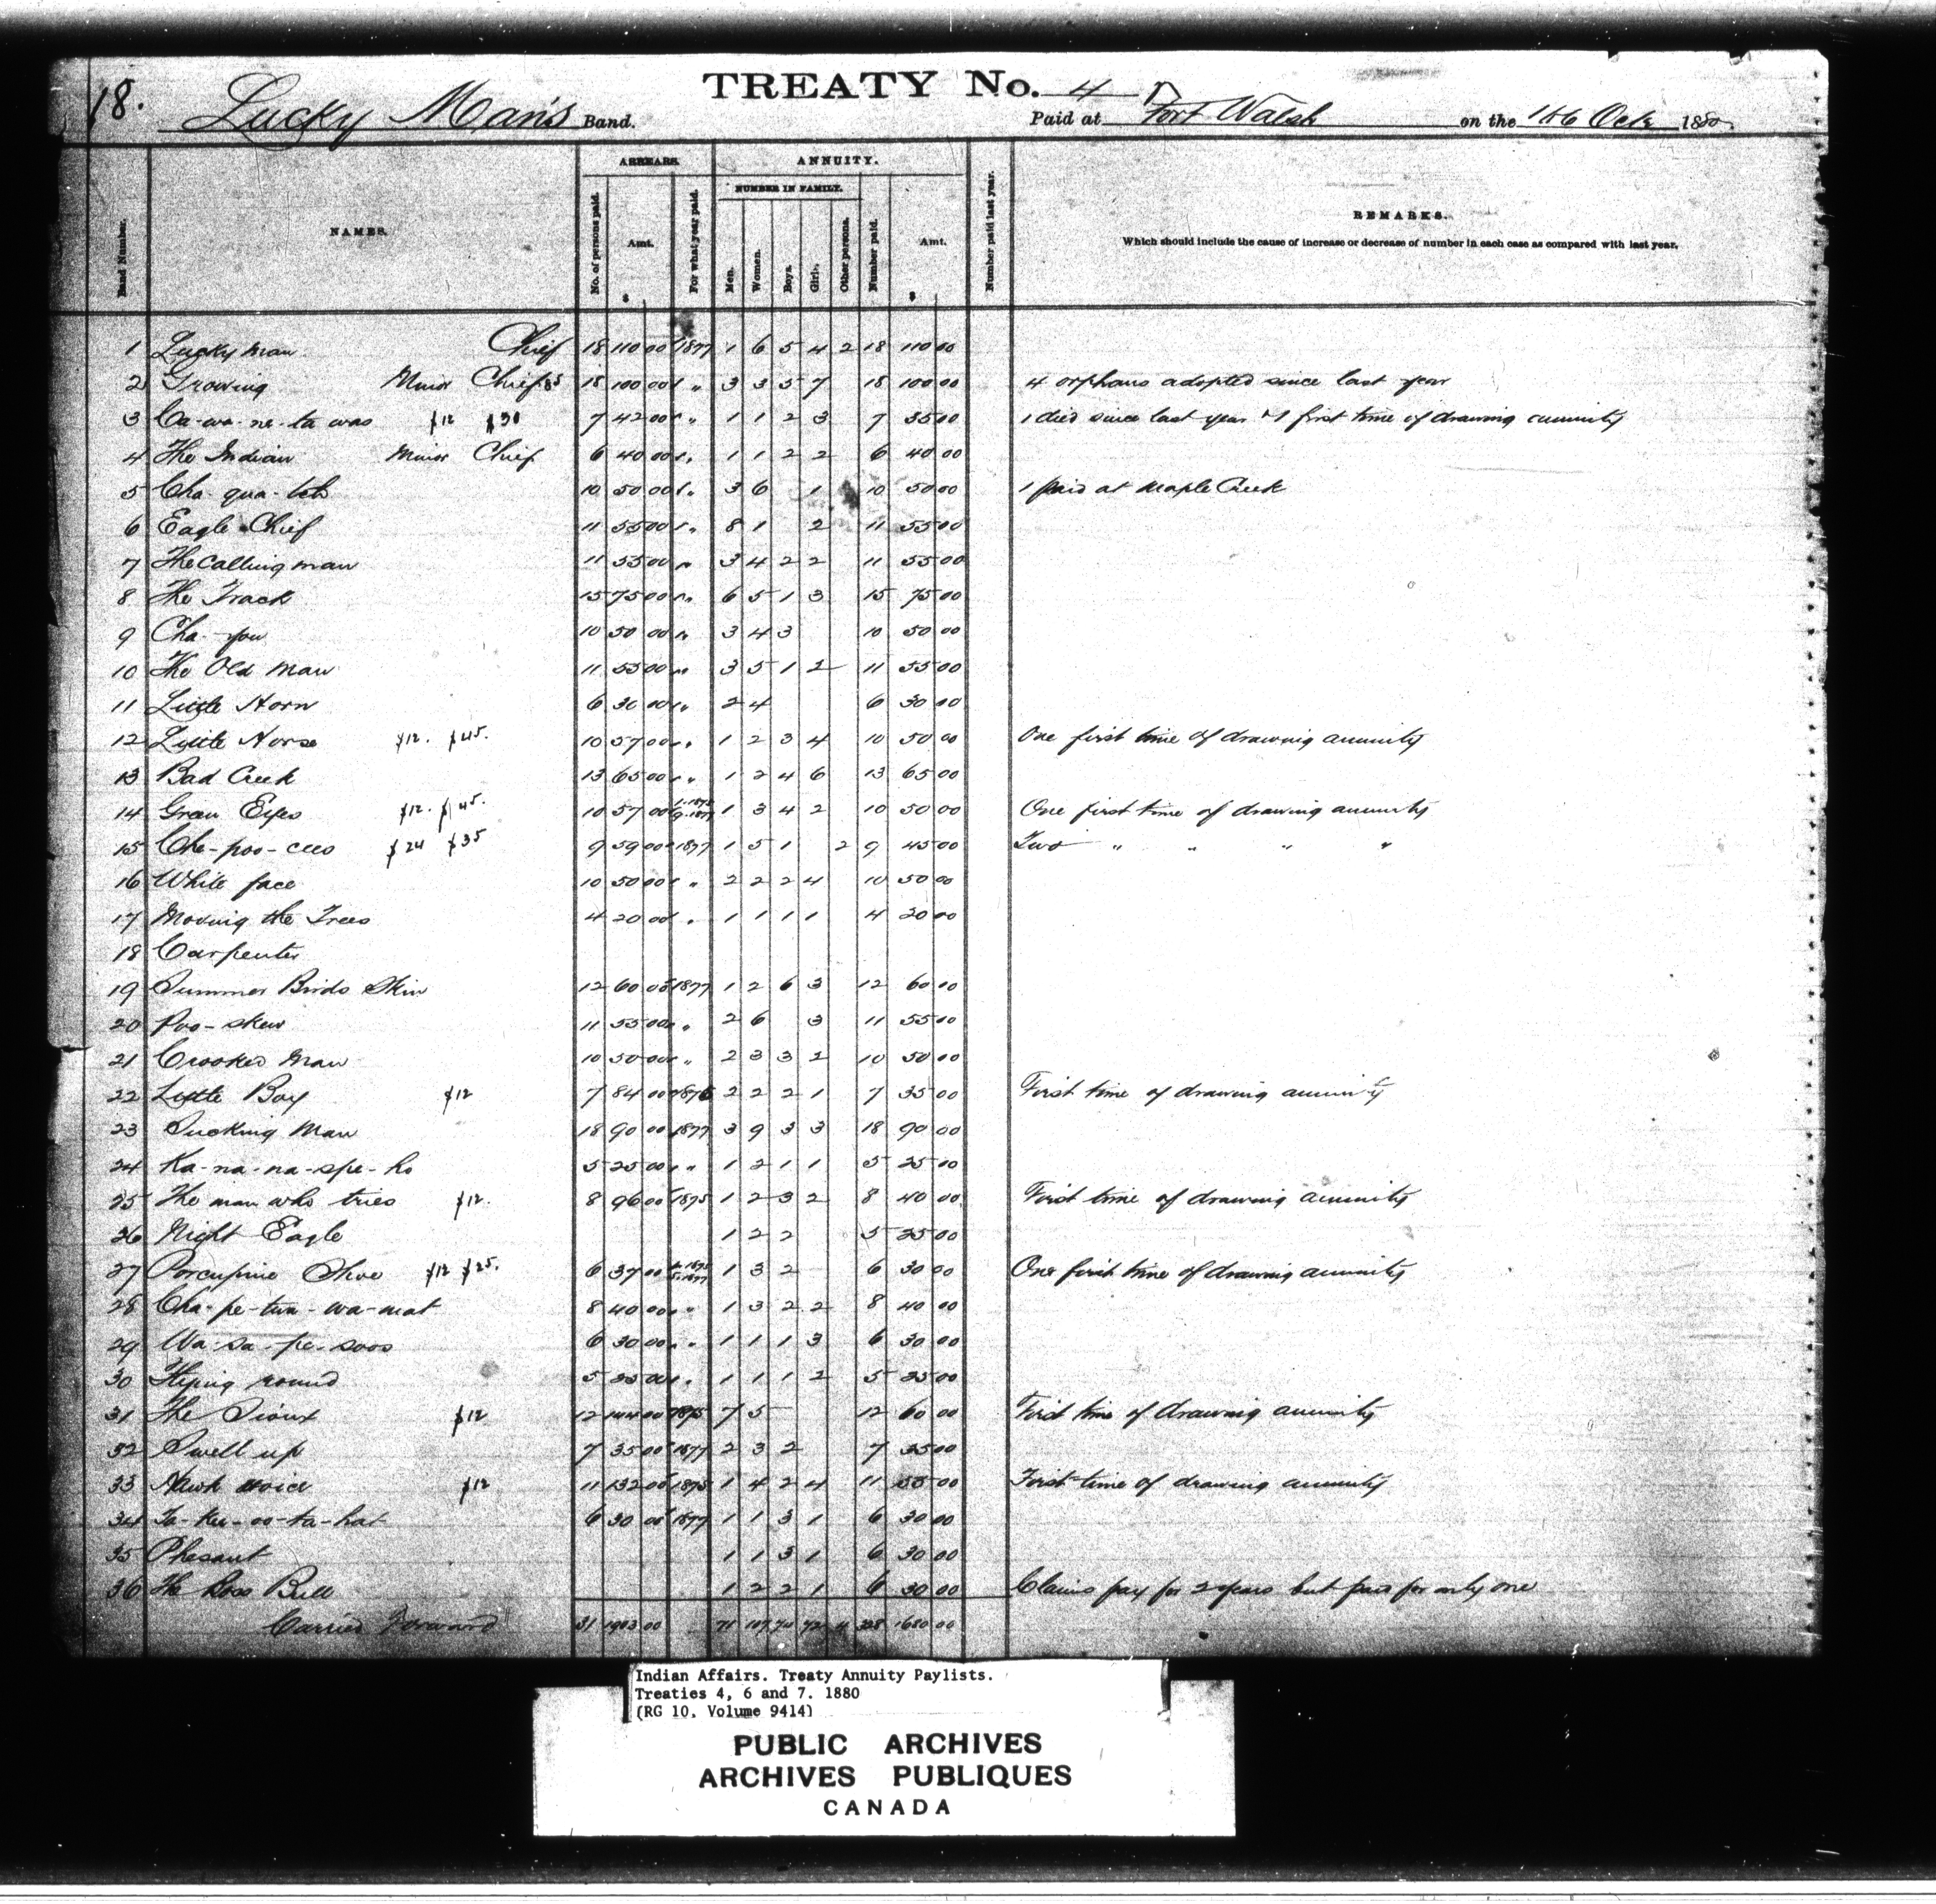 18.
TREATY No. 4
Lucky Man's Band. Paid at Fort Walsh on the Oct 1880
Band Number. NAMES. ARREARS. ANNUITY. Number paid last year. REMARKS.
No. of persons paid. Amt. $ For what year paid. NUMBER IN FAMILY. Number paid. Amt. $
Men. Women. Boys. Girls. Other persons.
Which should include the cause of increase or decrease of number in each case as compared with last year.
1 Lucky man Chief 18 110 00 1877 1 6 5 4 2 18 110 00
2 Growing Minor Chief 18 100 00 " 3 3 5 7 18 100 00 4 orphans adopted since last year
3 Ca-wa-ne-ta was $12 $30 7 42 00 " 1 1 2 3 7 35 00 1 died since last year 1 first time of drawing annuity
4 The Indian Minor Chief 6 40 00 " 1 1 2 2 6 40 00
5 Cha-qua- 10 50 00 " 3 6 1 10 50 00 1 paid at Maple Creek
6 Eagle Chief 11 55 00 " 8 1 2 11 55 00
7 The Calling man 11 55 00 " 3 4 2 2 11 55 00
8 The Track 15 75 00 " 6 5 1 3 15 75 00
9 Cha-you 10 50 00 " 3 4 3 10 50 00
10 The Old Man 11 55 00 " 3 5 1 2 11 55 00
11 Little Horn 6 30 00 " 2 4 6 30 00
12 Little Horse $12. $45. 10 57 00 " 1 2 3 4 10 50 00 One first time of drawing annuity
13 Bad Creek 13 65 00 " 1 2 4 6 13 65 00
14 Green Eyes $12. $45. 10 57 00 1-1875 9-1877 1 3 4 2 10 50 00 One first time of drawing annuity
15 Che-poo-cees $24 $35 9 59 00 1877 1 5 1 2 9 45 00 Two " " " "
16 White face 10 50 00 " 2 2 2 4 10 50 00
17 Moving the Trees 4 20 00 " 1 1 1 1 4 20 00
18 Carpenter
19 Summer Birds Skin 12 60 00 1877 1 2 6 3 12 60 00
20 Poo-skew 11 55 00 " 2 6 3 11 55 00
21 Crooked Man 10 50 00 " 2 3 3 2 10 50 00
22 Little Boy $12 7 84 00 1876 2 2 2 1 7 35 00 First time of drawing annuity
23 Sucking Man 18 90 00 1877 3 9 3 3 18 90 00
24 Ka-na-na-spe-ho 5 25 00 " 1 2 1 1 5 25 00
25 The man who tries $12. 8 96 00 1875 1 2 3 2 8 40 00 First time of drawing annuity
26 Night Eagle 1 2 2 5 25 00
27 Porcupine Shoe $12 $25. 6 37 00 1-1875 5-1877 1 3 2 6 30 00 One first time of drawing annuity
28 Cha-pe-twa-wa-mat 8 40 00 " 1 3 2 2 8 40 00
29 Wa-sa-pe-soos 6 30 00 " 1 1 1 3 6 30 00
30 Flying round 5 25 00 " 1 1 1 2 5 25 00
31 The Sioux $12 12 144 00 1875 7 5 12 60 00 First time of drawing annuity
32 Swell up 7 35 00 1877 2 3 2 7 35 00
33 Hawk voice $12 11 132 00 1875 1 4 2 4 11 55 00 First time of drawing annuity
34 Ta-kee-oo-ta-hat 6 30 00 1877 1 1 3 1 6 30 00
35 Phesant 1 1 3 1 6 30 00
36 The Boss Bull 1 2 2 1 6 30 00 Claims pay for 2 years but paid for only one
Carried Forward 1903 00 71 107 1680 00
Indian Affairs. Treaty Annuity Paylists.
Treaties 4, 6 and 7. 1880
(RG 10, Volume 9414)
PUBLIC ARCHIVES
ARCHIVES PUBLIQUES
CANADA